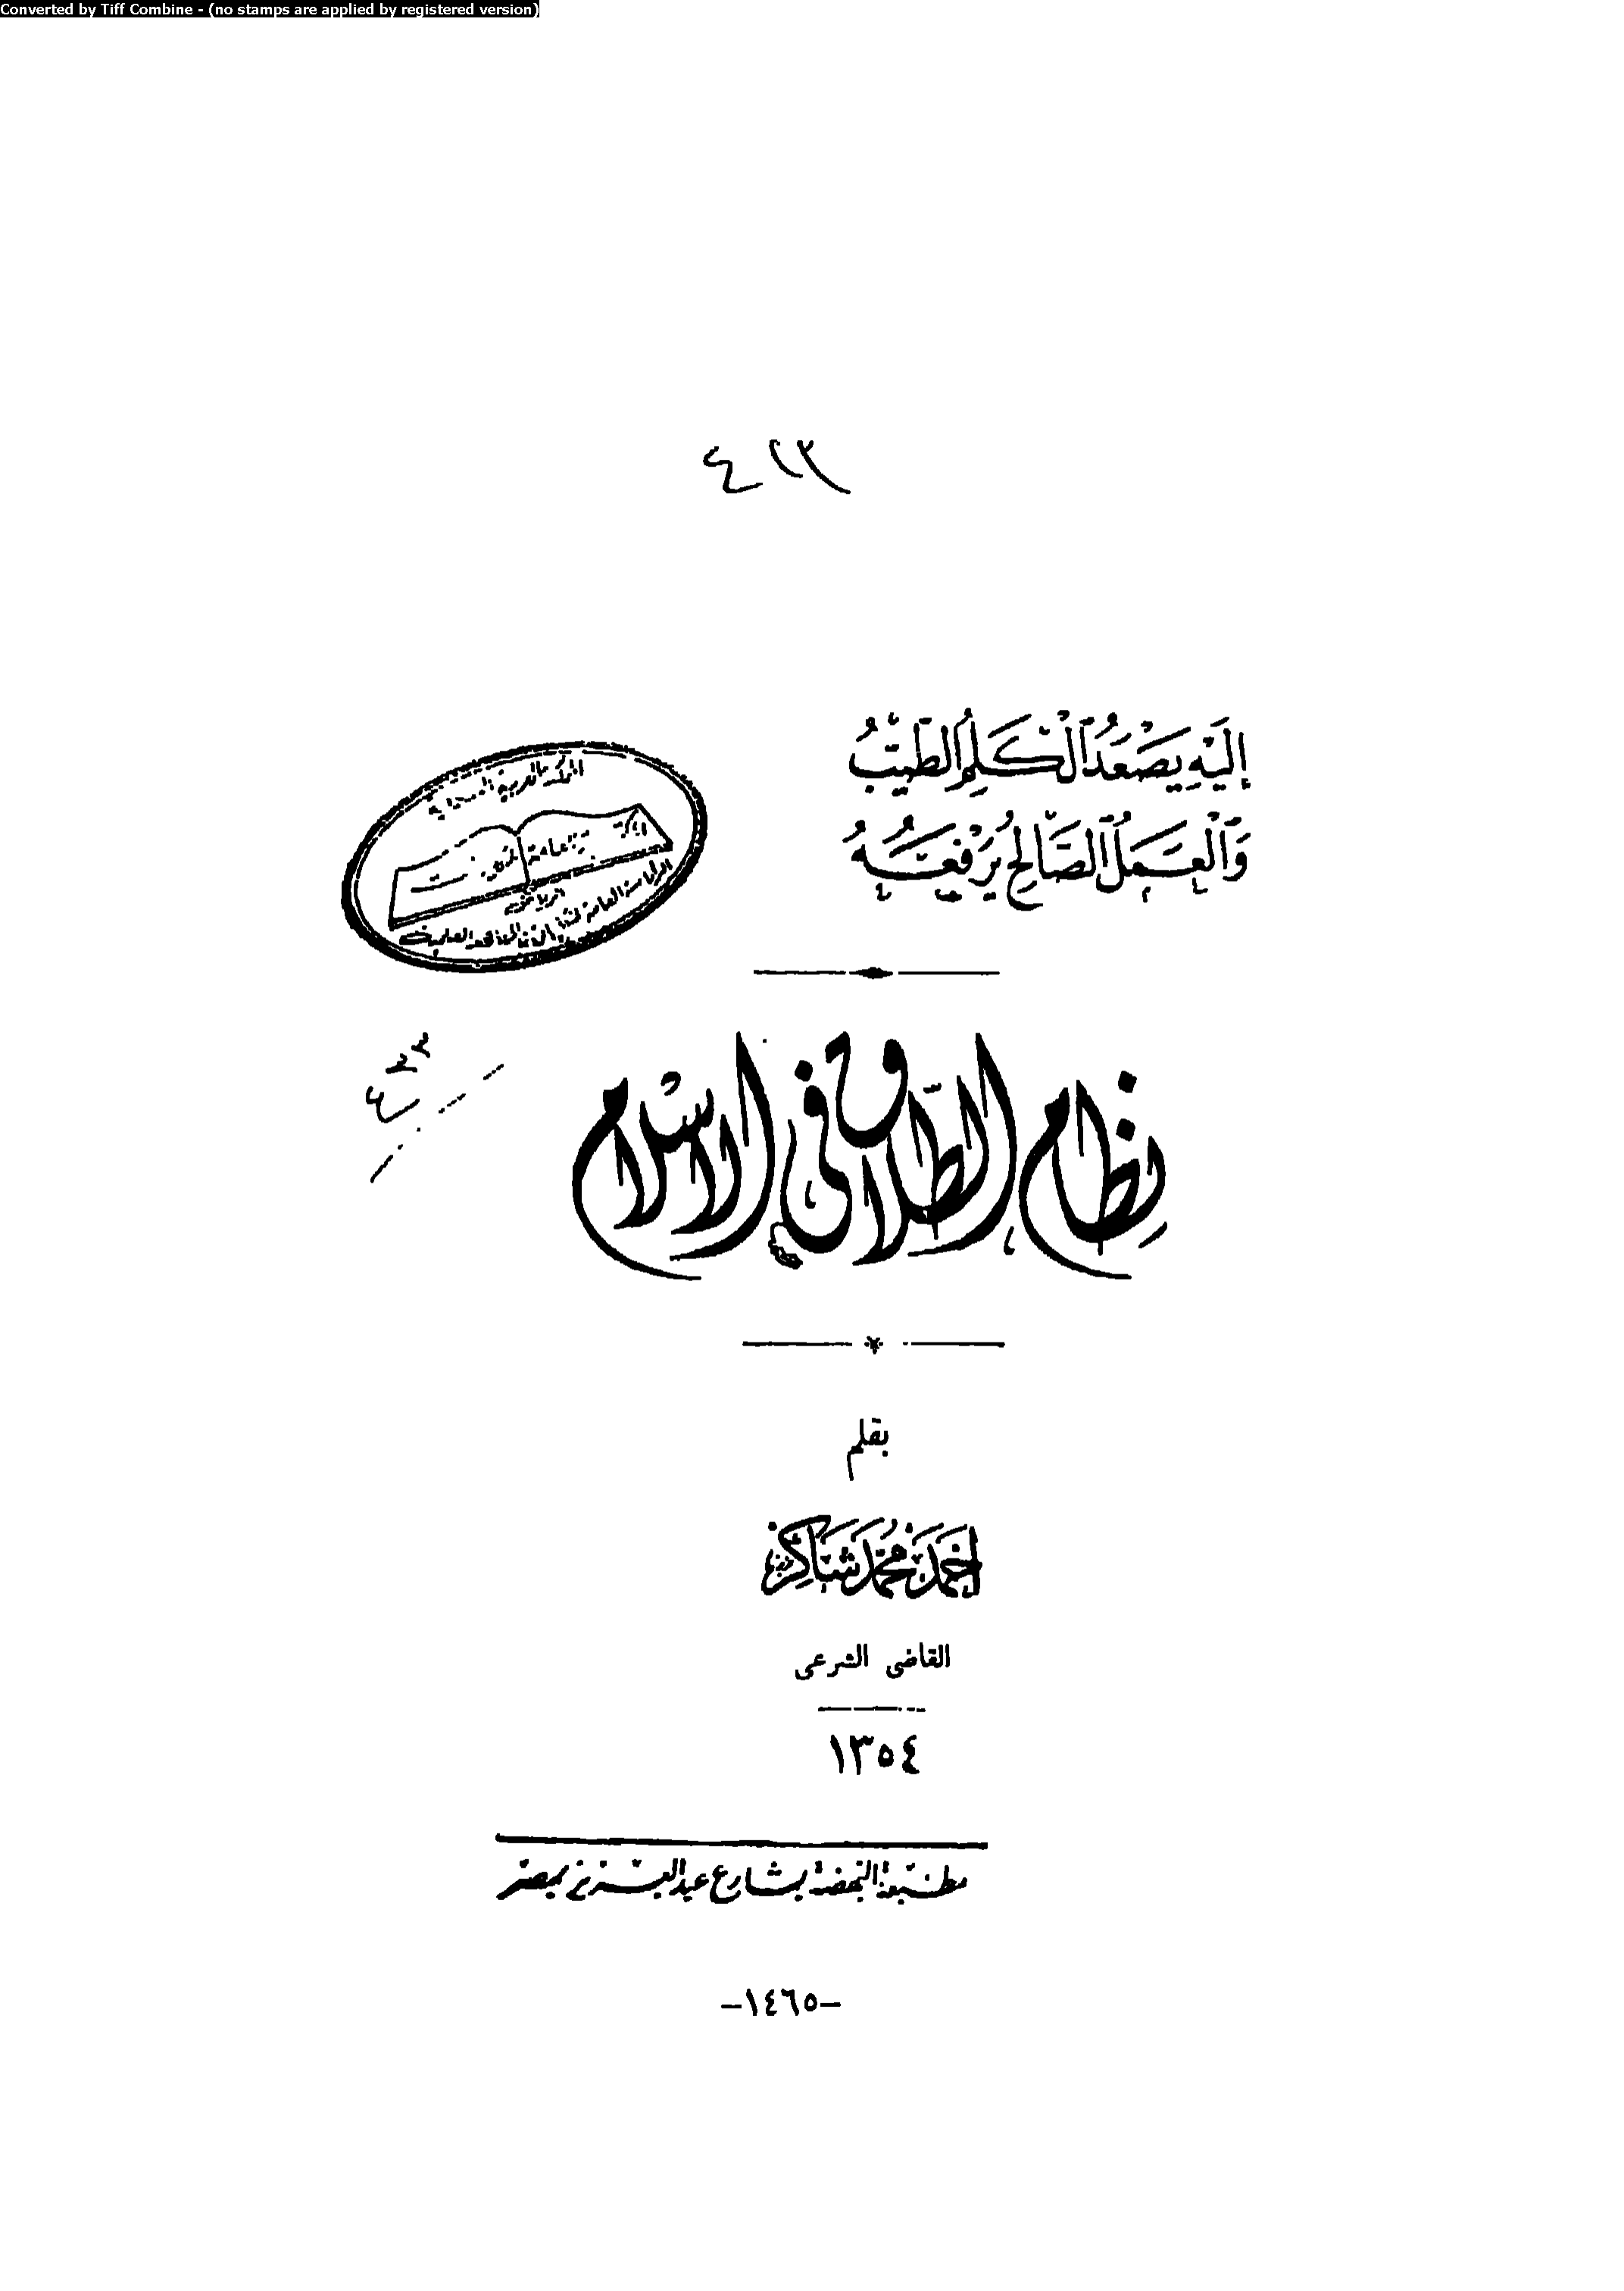 Converted by Tiff Combine - (no stamps are applied by registered version)
إِلَيْهِ يَصْعَدُ الْكَلِمُ الطَّيِّبُ
وَالْعَمَلُ الصَّالِحُ يَرْفَعُهُ
المملكة العربية السعودية
نظام الطلاق فى الاسلام
بقلم
احمد محمد شاكر
القاضى الشرعى
١٣٥٤
مطبعة النهضة بشارع عبد العزيز بمصر
-١٤٦٥-